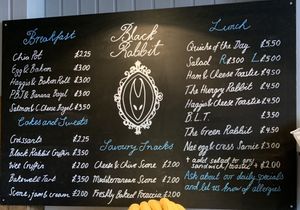 Breakfast
Chia Pot £2.25
Egg & Bacon £3.00
Haggis & Bacon Roll £3.00
P.B.J & Banana Bagel £3.50
Salmon & C Cheese Bagel £3.50
Cakes and Sweets
Croissants £2.25
Black Rabbit Griffin £3.50
Wee Griffin £2.00
Bakewell Tart £3.50
Scone, jam & cream £2.00
Black
Rabbit
Savoury Snacks
Cheese & Chive Scone £2.00
Mediterranean Scone £2.00
Freshly Baked Focaccia £2.00
Lunch
Quiche of the Day £5.50
Salad R £3.00 L £5.00
Ham & Cheese Toastie £3.50
The Hungry Rabbit £3.50
Haggis & Cheese Toastie £3.50
B.L.T. £3.50
The Green Rabbit £3.50
Nae egg & cress Sarnie £3.00
+ add salad to any
sandwich/toastie + £2.00
Ask about our daily specials
and let us know of allergies